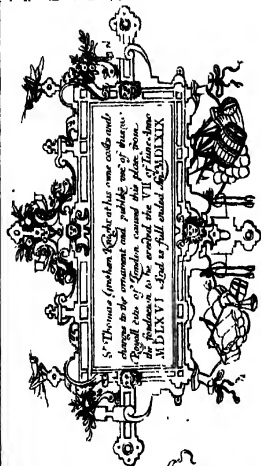 Sr. Thomas Gresham Knight at his owne costs and
charges to the ornament and publike use of this
Royall citie of London caused this place from
the fondacion to be erected the VII of Iune Anno
MDLXVI And is full ended Ao MDLXIX